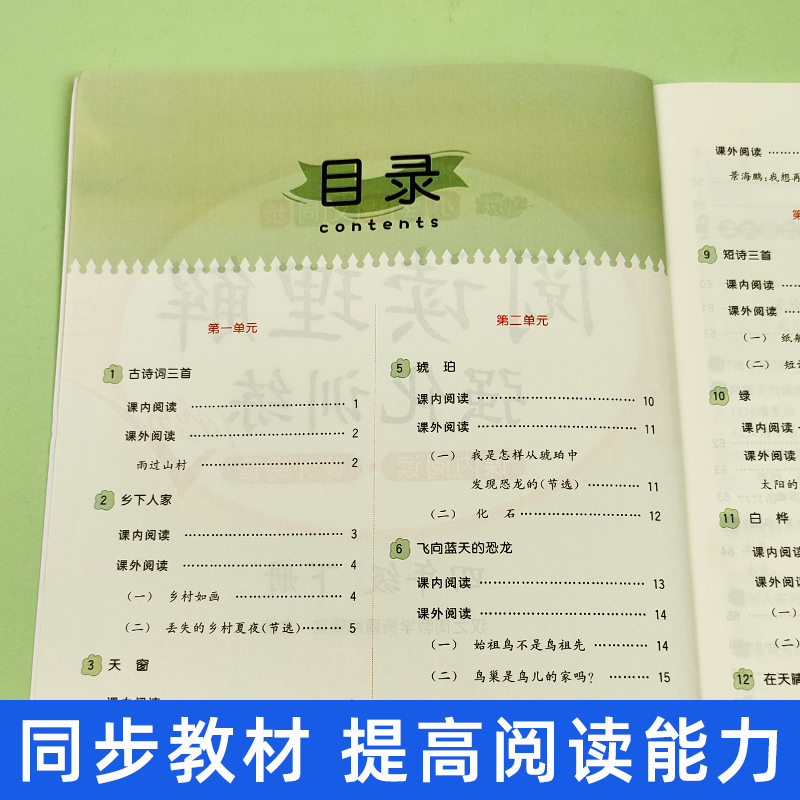 目录
contents
第一单元
1 古诗词三首
课内阅读 ………………………… 1
课外阅读 ………………………… 2
雨过山村 ………………………… 2
2 乡下人家
课内阅读 ………………………… 3
课外阅读 ………………………… 4
（一） 乡村如画 ……………… 4
（二） 丢失的乡村夏夜(节选)……… 5
3 天 窗
课内阅读
第二单元
5 琥 珀
课内阅读 ………………………… 10
课外阅读 ………………………… 11
（一） 我是怎样从琥珀中
发现恐龙的(节选) ………… 11
（二） 化 石……………… 12
6 飞向蓝天的恐龙
课内阅读 ………………………… 13
课外阅读 ………………………… 14
（一） 始祖鸟不是鸟祖先 ………… 14
（二） 鸟巢是鸟儿的家吗？ ……… 15
课外阅读 ………
景海鹏:我想再
第
9 短诗三首
课内阅读 ……
课外阅读 ……
（一） 纸船
（二） 短
10 绿
课内阅读
课外阅读
太阳的
11 白 桦
课内阅读
课外阅读
（一）
（二）
12* 在天晴
同步教材 提高阅读能力